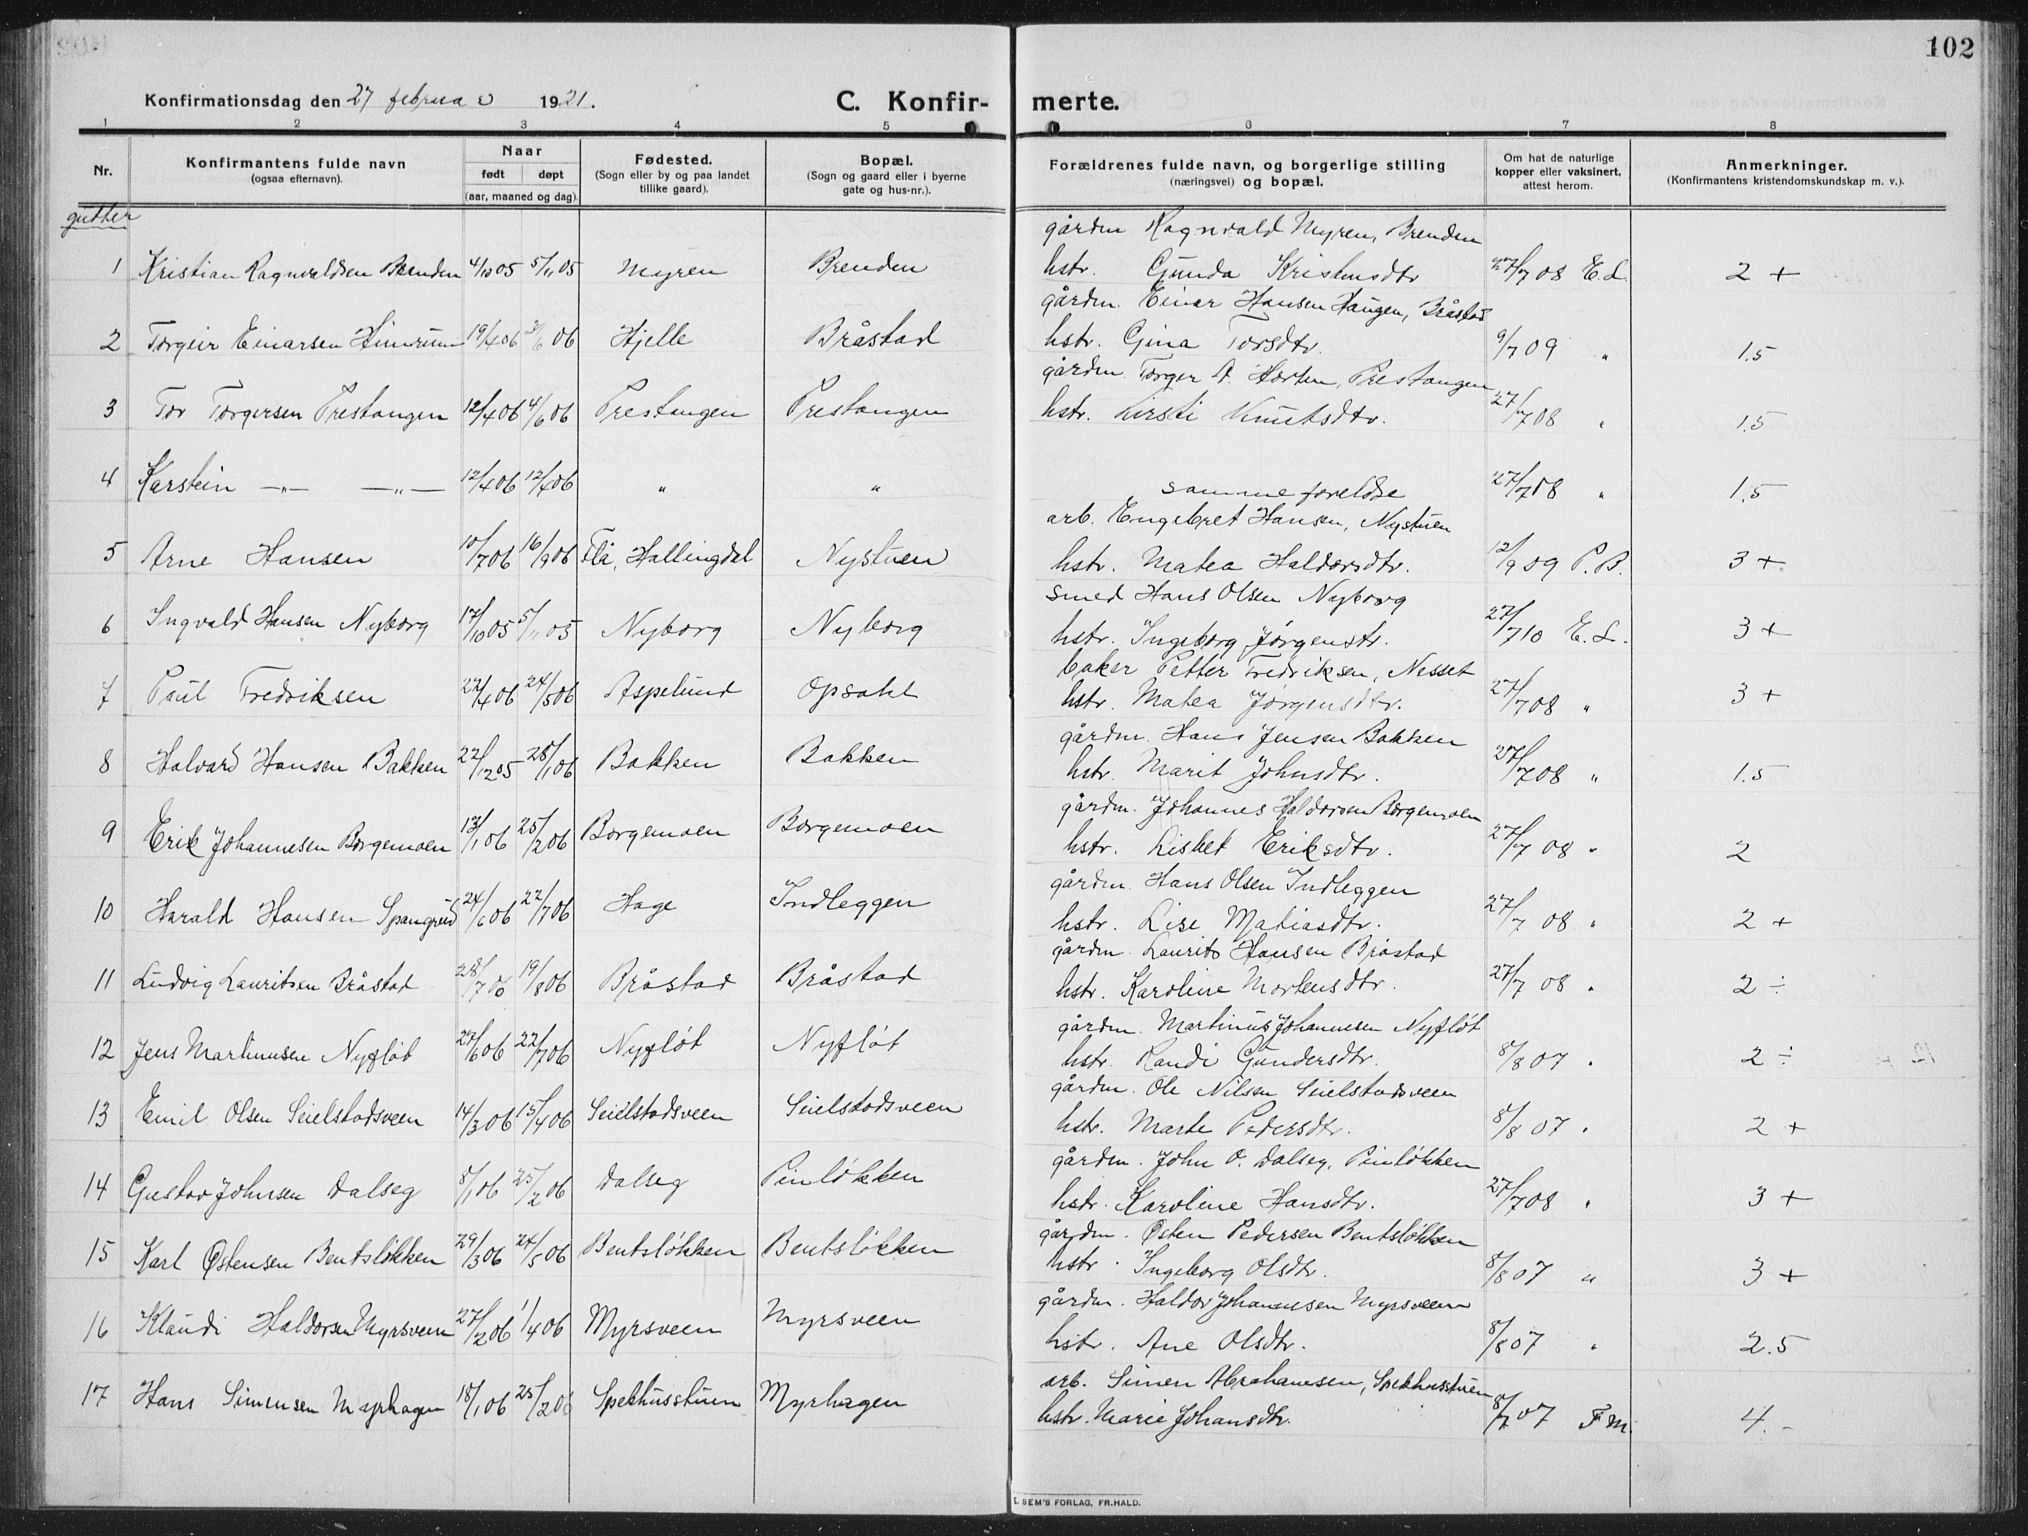 102
Konfirmationsdag den 27 februa 1921.
C. Konfir- merte.
1 2 3 4 5 6 7 8
Nr.
Konfirmantens fulde navn
(ogsaa efternavn).
Naar
født døpt
(aar, maaned og dag)
Fødested.
(Sogn eller by og paa landet
tillike gaard).
Bopæl.
(Sogn og gaard eller i byerne
gate og hus-nr.).
Forældrenes fulde navn, og borgerlige stilling
(næringsvei) og bopæl.
Om hat de naturlige
kopper eller vaksinert,
attest herom.
Anmerkninger.
(Konfirmantens kristendomskundskap m. v.).
gutter
gårdm Ragnvald Myren, Brenden
1 Kristian Ragnvaldsen Brenden 4/10 05 5/11 05 Myren Brenden hstr. Gunda Kristensdtr 27/7 08 E.L. 2 +
gårdm. Einar Hansen Haugen, Bråstad
2 Torgeir Einarsen Himrum 19/4 06 3/6 06 Hjelle Bråstad hstr. Gina Torsdtr. 9/7 09 " 1.5
gårdm. Torger A. Horten, Prestangen
3 Tor Torgersen Prestangen 12/4 06 4/6 06 Prestangen Prestangen hstr. Kirsti Knutsdtr. 27/7 08 " 1.5
4 Karstein —"— —"— 12/4 06 12/4 06 " " samme foreldre 27/7 08 " 1.5
arb. Engebret Hansen, Nystuen
5 Arne Hansen 10/7 06 16/9 06 Flå, Hallingdal Nystuen hstr. Matea Haldorsdtr. 12/9 09 P.B. 3 +
smed Hans Olsen Nyborg
6 Ingvald Hansen Nyborg 17/10 05 5/11 05 Nyborg Nyborg hstr. Ingeborg Jørgenstr. 27/7 10 E.L. 3 +
baker Petter Fredriksen, Nesset
7 Paul Fredriksen 22/4 06 24/5 06 Aspelund Opsahl hstr. Matea Jørgensdtr. 27/7 08 " 3 +
gårdm. Hans Jensen Bakken
8 Halvard Hansen Bakken 22/12 05 28/1 06 Bakken Bakken hstr. Marit Johnsdtr. 27/7 08 " 1.5
gårdm. Johannes Haldorsen Borgemoen
9 Erik Johannesen Borgemoen 13/1 06 25/2 06 Borgemoen Borgemoen hstr. Lisbet Eriksdtr. 27/7 08 " 2
gårdm. Hans Olsen Indleggen
10 Harald Hansen Spangrud 24/6 06 22/7 06 Hage Indleggen hstr. Lise Matiasdtr. 27/7 08 " 2 +
gårdm. Laurits Hansen Bråstad
11 Ludvig Lauritsen Bråstad 28/7 06 19/8 06 Bråstad Bråstad hstr. Karoline Mortensdtr. 27/7 08 " 2 ÷
gårdm. Martinus Johannesen Nyfløt
12 Jens Martinusen Nyfløt 27/6 06 22/7 06 Nyfløt Nyfløt hstr. Randi Gundersdtr. 8/8 07 " 2 ÷
gårdm. Ole Nilsen Seielstadsveen
13 Emil Olsen Seielstadsveen 14/3 06 15/4 06 Seielstadsveen Seielstadsveen hstr. Marte Pedersdtr. 8/8 07 " 2 +
gårdm. John O. Dalseg, Pinløkken
14 Gustav Johnsen Dalseg 8/1 06 25/2 06 Dalseg Pinløkken hstr. Karoline Hansdtr. 27/7 08 " 3 +
gårdm. Østen Pedersen Bentsløkken
15 Karl Østensen Bentsløkken 29/3 06 24/5 06 Bentsløkken Bentsløkken hstr. Ingeborg Olsdtr. 8/8 07 " 3 +
gårdm. Haldor Johannesen Myrsveen
16 Klaudi Haldorsen Myrsveen 27/2 06 1/4 06 Myrsveen Myrsveen hstr. Ane Olsdtr. 8/8 07 " 2.5
arb. Simen Abrahamsen, Spekhusstuen
17 Hans Simensen Myrhagen 18/1 06 25/2 06 Spekhusstuen Myrhagen hstr. Marie Johansdtr. 8/7 07 F.M. 4.-
E. SEM'S FORLAG, FR.HALD.